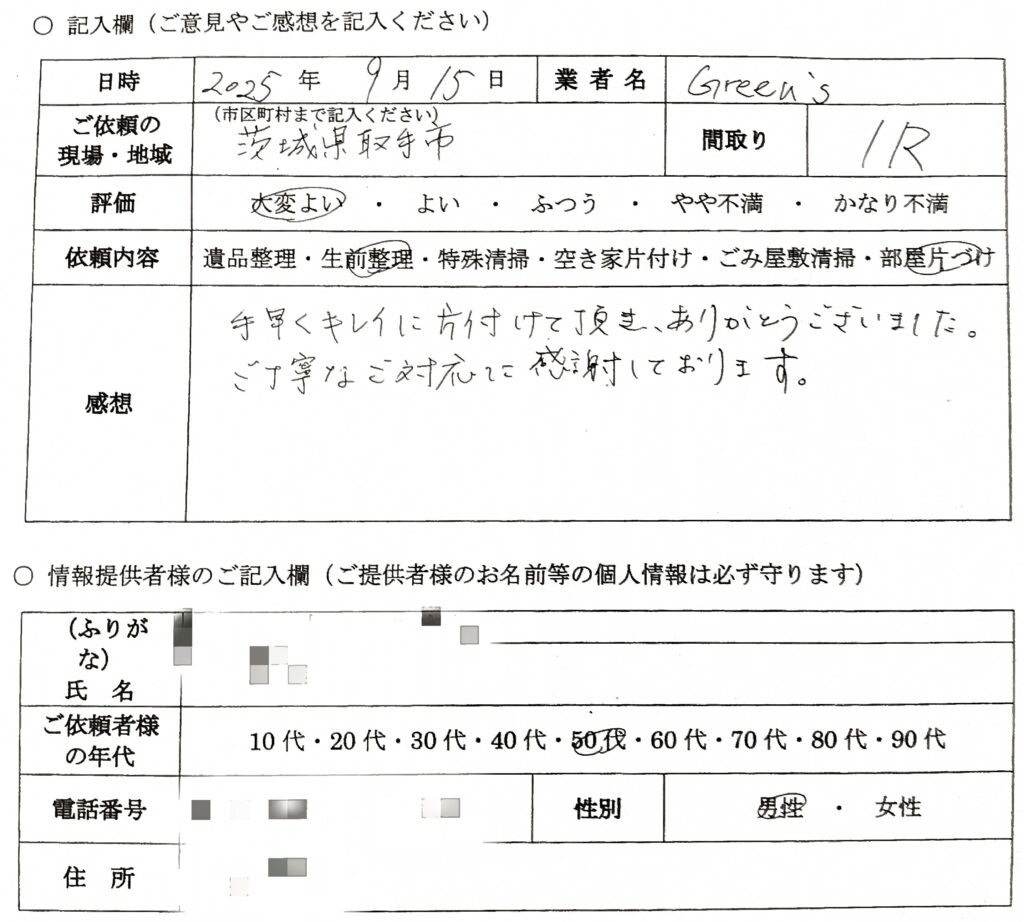 ○ 記入欄（ご意見やご感想を記入ください）
日時 2025 年 9 月 15 日 業者名 Green's
ご依頼の現場・地域 （市区町村まで記入ください） 茨城県取手市 間取り 1R
評価 大変よい ・ よい ・ ふつう ・ やや不満 ・ かなり不満
依頼内容 遺品整理・生前整理・特殊清掃・空き家片付け・ごみ屋敷清掃・部屋片づけ
感想
手早くキレイに片付けて頂き、ありがとうございました。
ご丁寧なご対応に感謝しております。
○ 情報提供者様のご記入欄（ご提供者様のお名前等の個人情報は必ず守ります）
（ふりがな）
氏 名
ご依頼者様の年代 10代・20代・30代・40代・50代・60代・70代・80代・90代
電話番号 性別 男性 ・ 女性
住 所